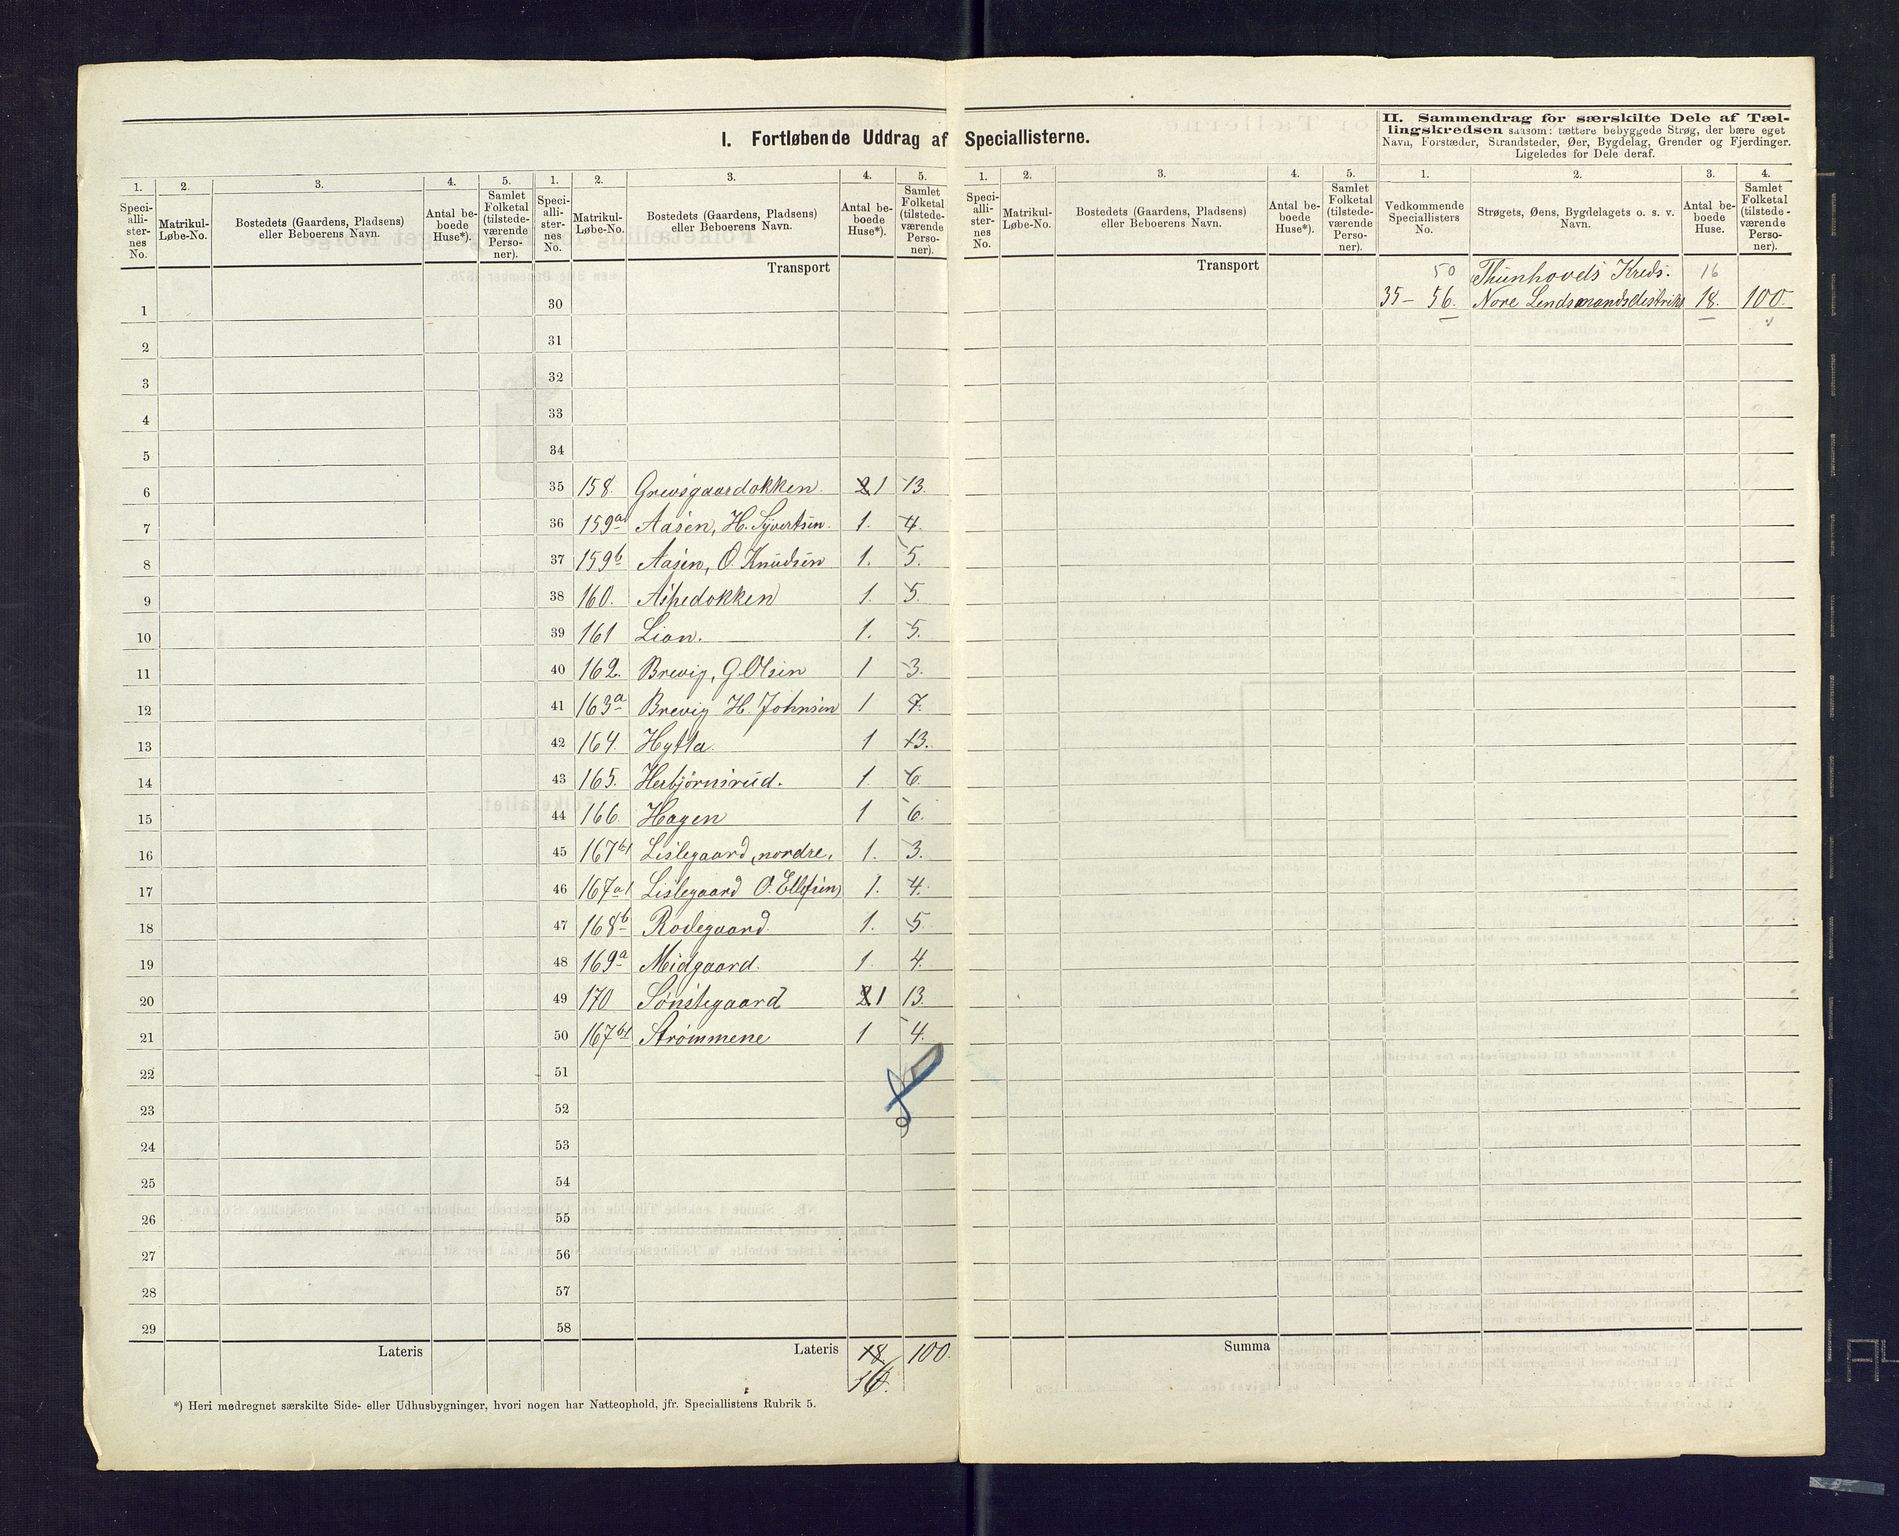 I. Fortløbende Uddrag af Speciallisterne.
II. Sammendrag for særskilte Dele af Tæl-
lingskredsen saasom: tættere bebyggede Strøg, der bære eget
Navn, Forstæder, Strandsteder, Øer, Bygdelag, Grender og Fjerdinger.
Ligeledes for Dele deraf.
1. 2. 3. 4. 5. 1. 2. 3. 4. 5. 1. 2. 3. 4. 5. 1. 2. 3. 4.
Speci-alli-ster-nes No. Matrikul-Løbe-No. Bostedets (Gaardens, Pladsens) eller Beboerens Navn. Antal be-boede Huse*). Samlet Folketal (tilstede-værende Perso-ner).
Speci-alli-ster-nes No. Matrikul-Løbe-No. Bostedets (Gaardens, Pladsens) eller Beboerens Navn. Antal be-boede Huse*). Samlet Folketal (tilstede-værende Perso-ner).
Speci-alli-ster-nes No. Matrikul-Løbe-No. Bostedets (Gaardens, Pladsens) eller Beboerens Navn. Antal be-boede Huse*). Samlet Folketal (tilstede-værende Perso-ner).
Vedkommende Speciallisters No. Strøgets, Øens, Bygdelagets o. s. v. Navn. Antal be-boede Huse. Samlet Folketal (tilstede-værende Perso-ner).
Transport Transport
50 Thunhovds Kreds. 16
35 - 56. Nore Lendsmandsdistrikt 18. 100.
1 30
2 31
3 32
4 33
5 34
6 35 158. Grevsgaardokken. 2 1 13.
7 36 159a Aasen, H. Syvertsen. 1. 4.
8 37 159b Aasen, O. Knudsen 1. 5.
9 38 160. Aspedokken 1. 5.
10 39 161 Lian. 1. 5.
11 40 162. Brevig, G Olsen 1 3.
12 41 163a Brevig H. Johnsen 1 7.
13 42 164. Hytta. 1 13.
14 43 165. Herbjørnsrud. 1. 6.
15 44 166. Hagen 1 6.
16 45 167b1 Lislegaard, nordre. 1. 3.
17 46 167a1 Lislegaard O. Ellefsen 1. 4.
18 47 168b Rodegaard. 1. 5.
19 48 169a Midgaard. 1. 4.
20 49 170 Sønstegaard 2 1 13.
21 50 167b1 Strømmene 1 4.
22 51
23 52
24 53
25 54
26 55
27 56
28 57
29 58
Lateris Lateris 18 100. Summa
16.
*) Heri medregnet særskilte Side- eller Udhusbygninger, hvori nogen har Natteophold, jfr. Speciallistens Rubrik 5.